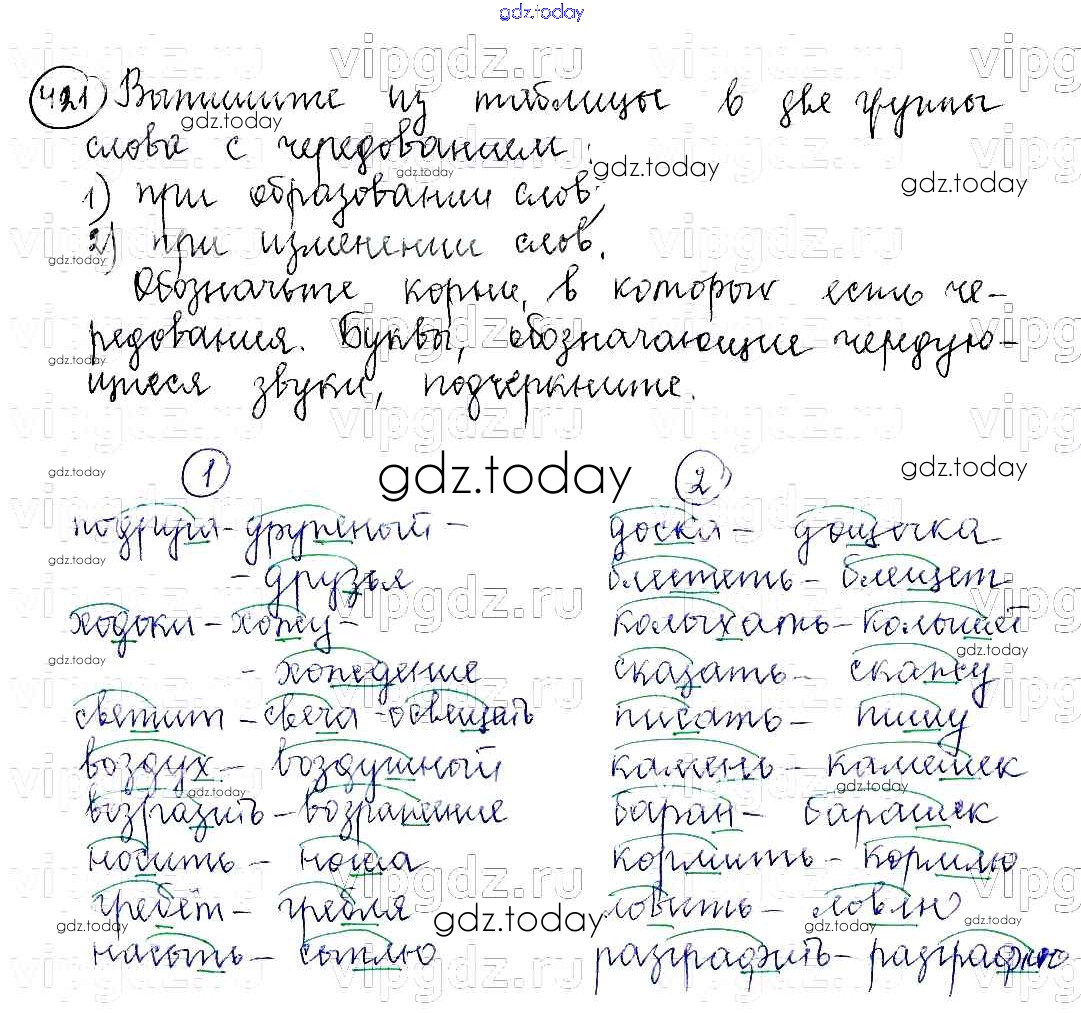 gdz.today
421 Выпишите из таблицы в две группы
слова с чередованием:
1) при образовании слов;
2) при изменении слов.
Обозначьте корни, в которых есть че-
редования. Буквы, обозначающие чередую-
щиеся звуки, подчеркните.
1
подруга - дружный -
- друзья
ходоки - хожу -
- хождение
светит - свеча - освещать
воздух - воздушный
возразить - возражение
носить - ноша
гребёт - гребля
насыпь - сыплю
2
доска - дощечка
блестеть - блещет
колыхать - колышет
сказать - скажу
писать - пишу
камень - камешек
баран - барашек
кормить - кормлю
ловить - ловлю
разграфить - разграфлю